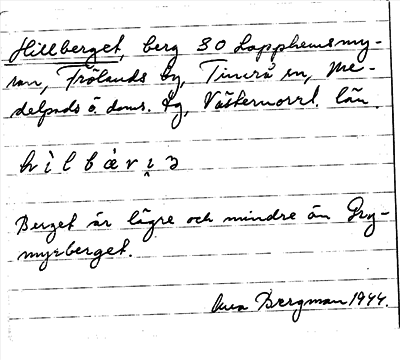 Hillberget, berg SO Lapphemsmy-
ran, Frölands by, Timrå sn, Me-
delpads ö. doms. tg, Västernorrl. län.
h ì l b æ̀ r ı̣ ʒ
Berget är lägre och mindre än Gry-
myrberget.
Bergman 1944.